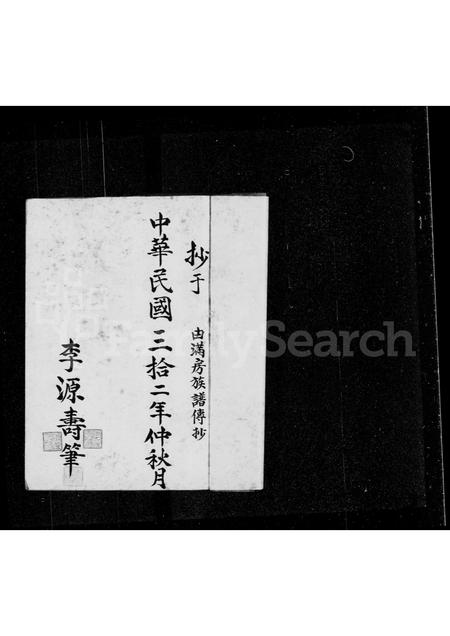 抄于
由滿房族譜傳抄
中華民國三拾二年仲秋月
李源壽筆
FamilySearch